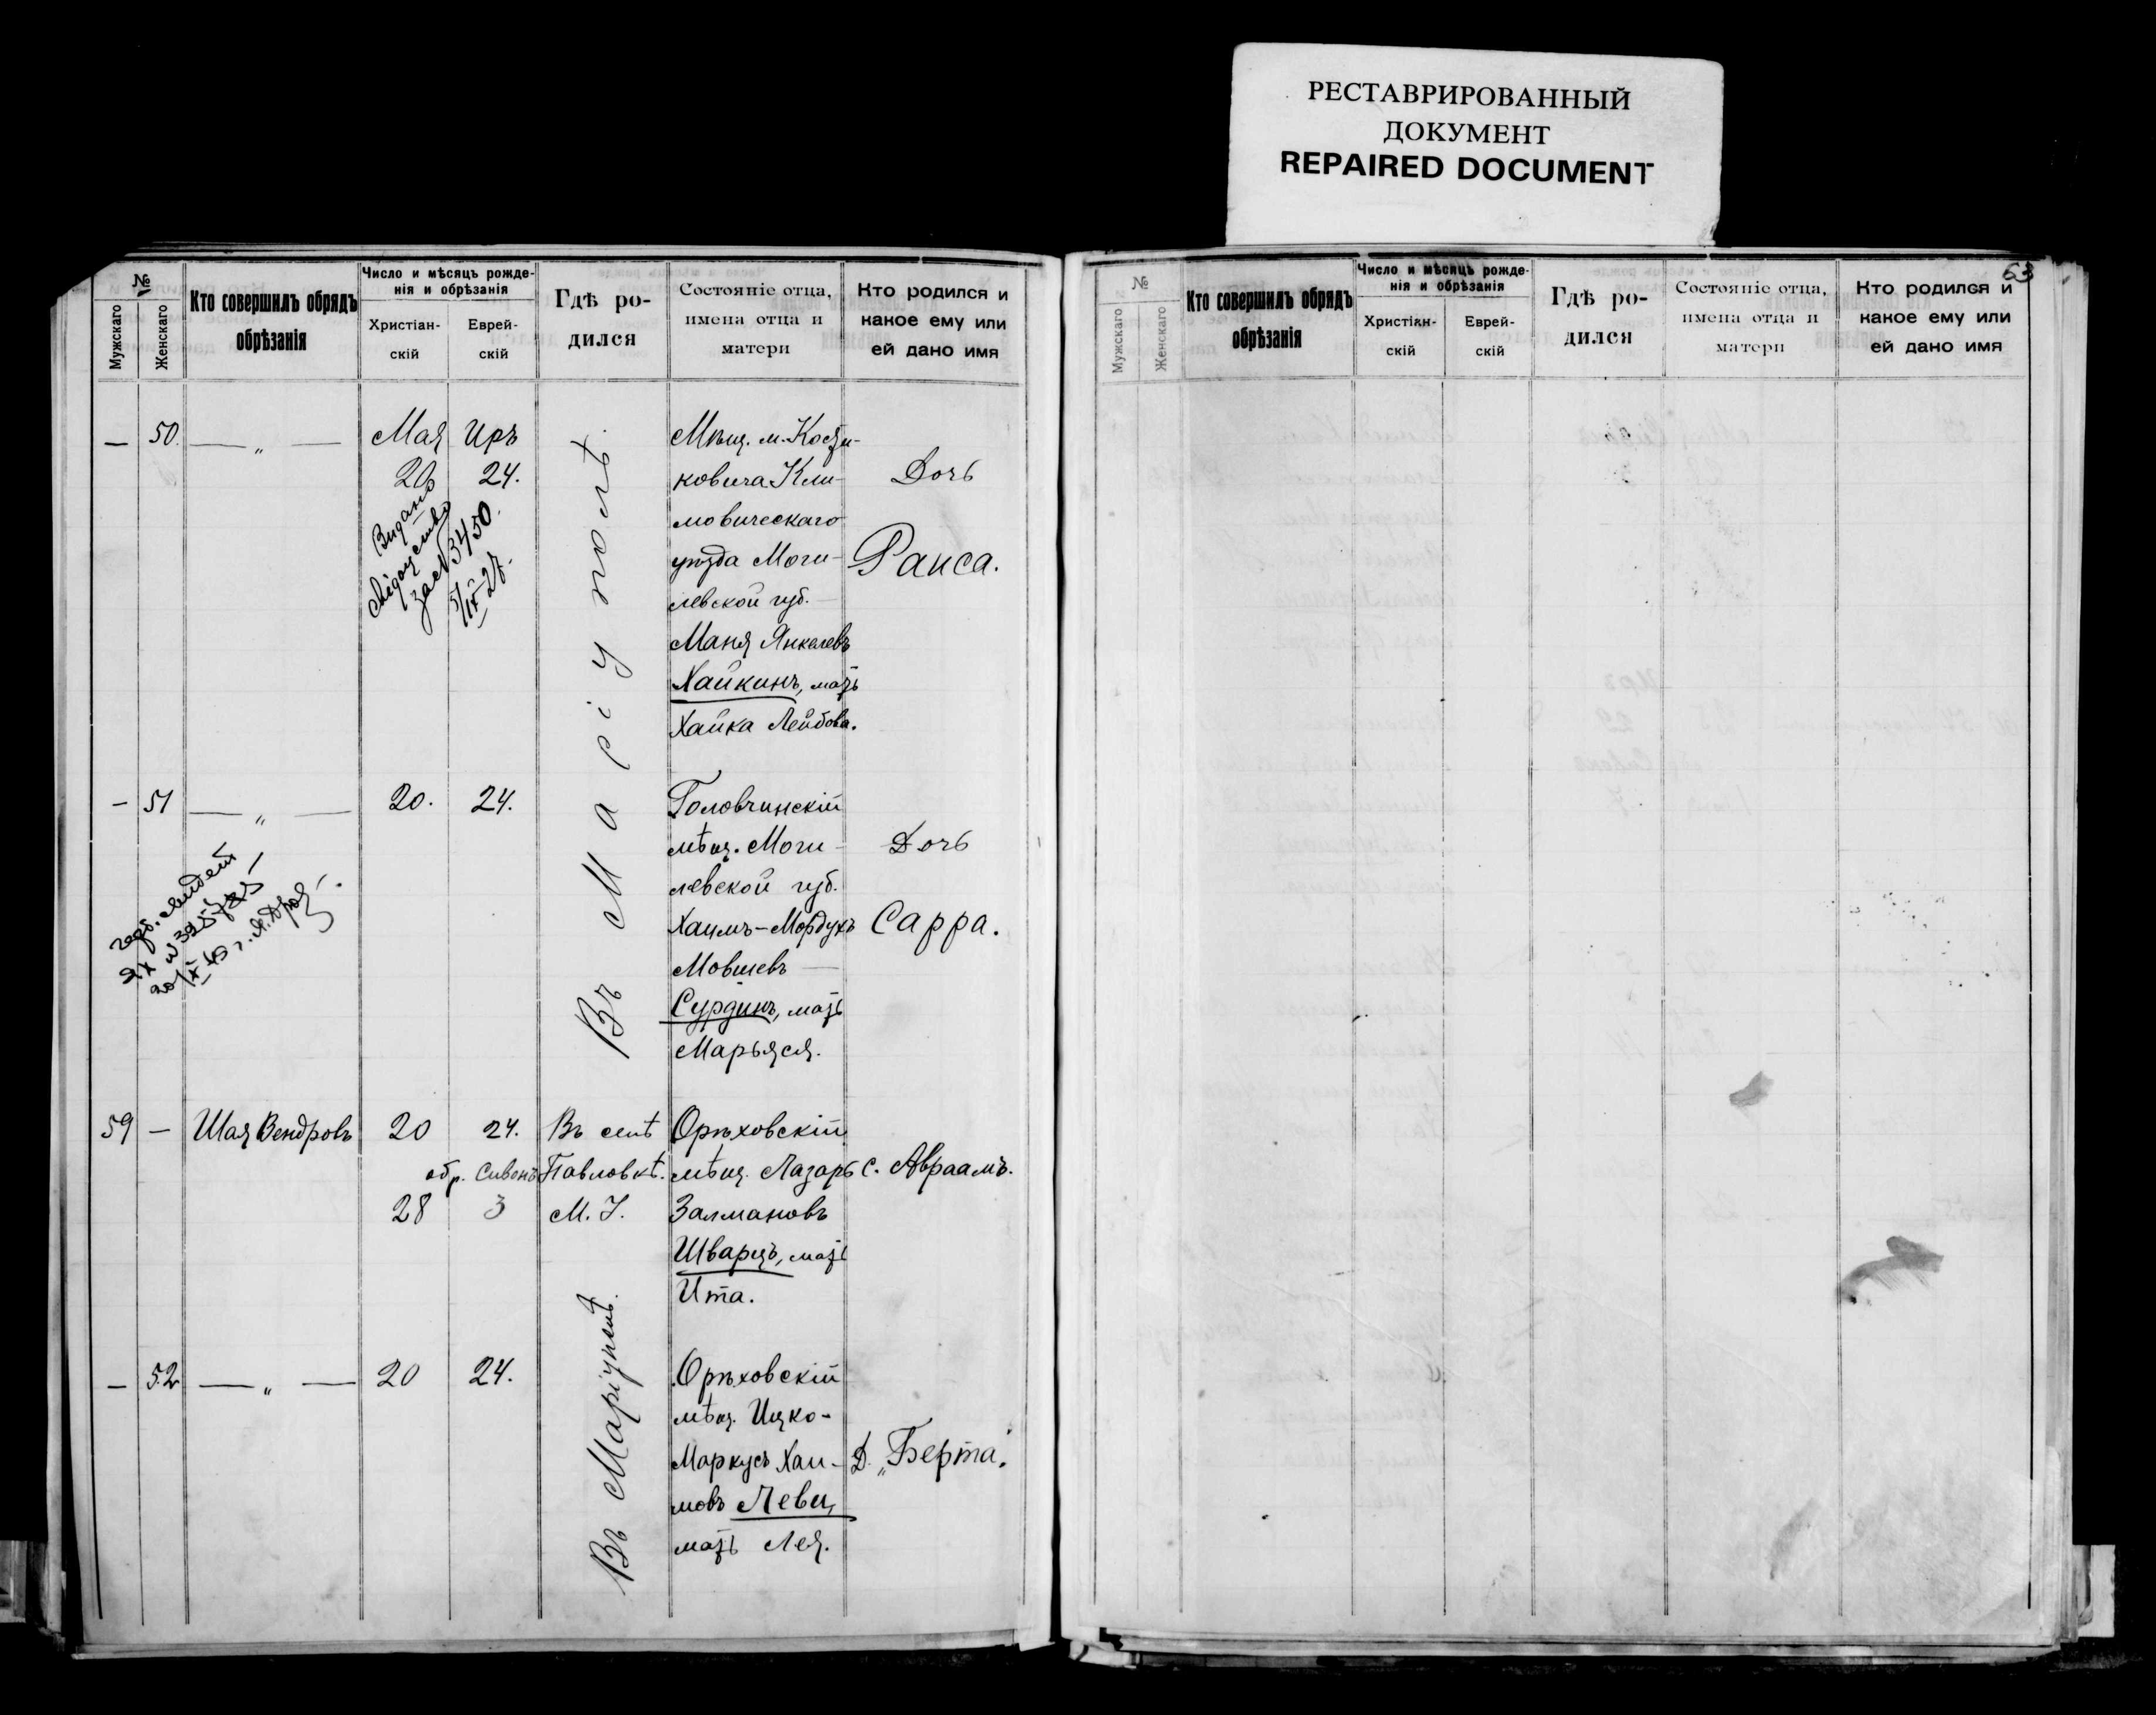 РЕСТАВРИРОВАННЫЙ
ДОКУМЕНТ
REPAIRED DOCUMENT
№
Мужскаго
Женскаго
Кто совершилъ обрядъ
обрѣзанія
Число и мѣсяцъ рожде-
нія и обрѣзанія
Христіан-
скій
Еврей-
скій
Гдѣ ро-
дился
Состояніе отца,
имена отца и
матери
Кто родился и
какое ему или
ей дано имя
— 50. — „ —
Мая Иръ
20 24.
Видано
свідоцтво
за № 3450.
5/IX-27.
Въ Маріуполѣ.
Мѣщ. м. Костю-
ковича Кли-
мовическаго
уѣзда Моги-
левской губ.
Маня Янкелевъ
Хайкинъ, мать
Хайка Лейбова.
Дочь
Раиса.
— 51 — „ —
20. 24.
Головчинскій
мѣщ. Моги-
левской губ.
Хаимъ-Мордухъ
Мовшевъ
Сурдинъ, мать
Марьяся.
Дочь
Сарра.
59 — Шая Вендровъ
20 24.
обр. Сивонъ
28 3
Въ селѣ
Павловкѣ.
М. У.
Орѣховскій
мѣщ. Лазарь
Залмановъ
Шварцъ, мать
Ита.
с. Авраамъ.
— 52 — „ —
20 24.
Въ Маріуполѣ.
Орѣховскій
мѣщ. Ицко-
Маркусъ Хаи-
мовъ Леви,
мать Лея.
Д. „Берта".
63
№
Мужскаго
Женскаго
Кто совершилъ обрядъ
обрѣзанія
Число и мѣсяцъ рожде-
нія и обрѣзанія
Христіан-
скій
Еврей-
скій
Гдѣ ро-
дился
Состояніе отца,
имена отца и
матери
Кто родился и
какое ему или
ей дано имя